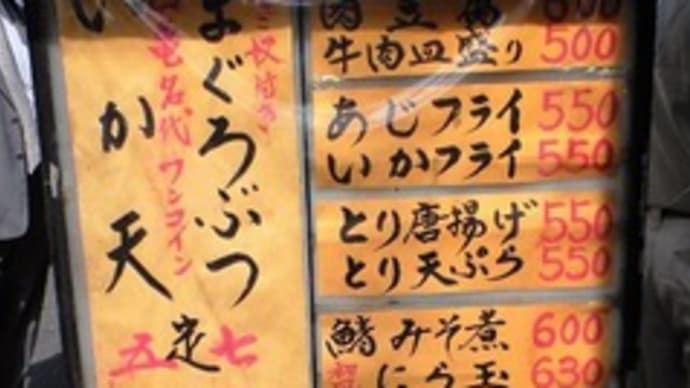 牛肉皿盛り 500
あじフライ 550
いかフライ 550
とり唐揚げ 550
とり天ぷら 550
鯖みそ煮 600
にら玉 630
まぐろぶつ
七
名代ワンコイン
いか天
定
五